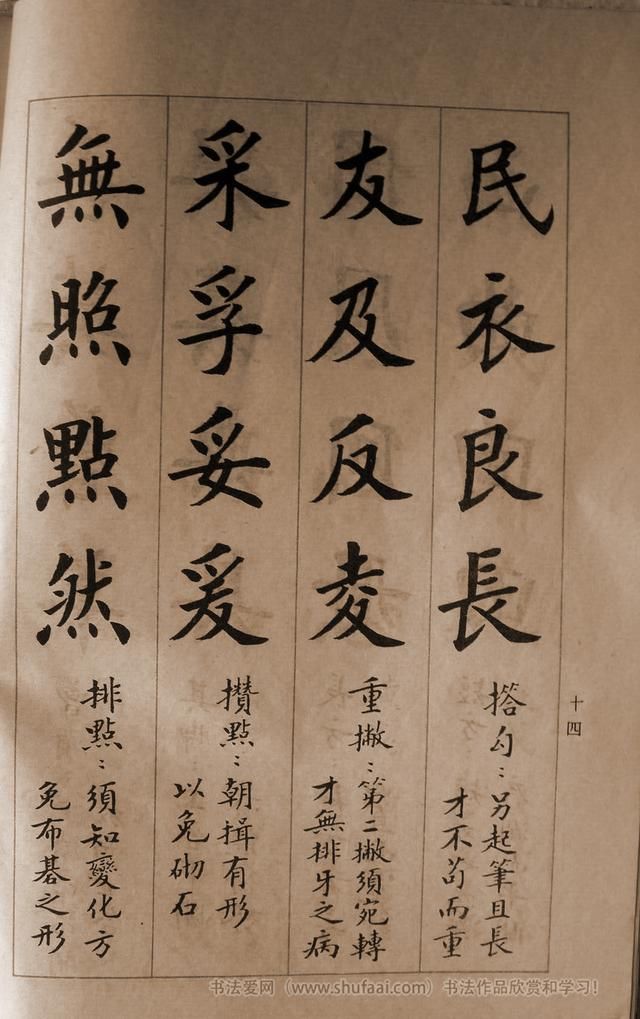 十四
民衣良長
搭勾：另起筆且長
才不苟而重
友及反夌
重撇：第二撇須宛轉
才無排牙之病
采孚妥爰
攢點：朝揖有形
以免砌石
無照點然
排點：須知變化方
免布碁之形
书法爱网（www.shufaai.com）书法作品欣赏和学习!